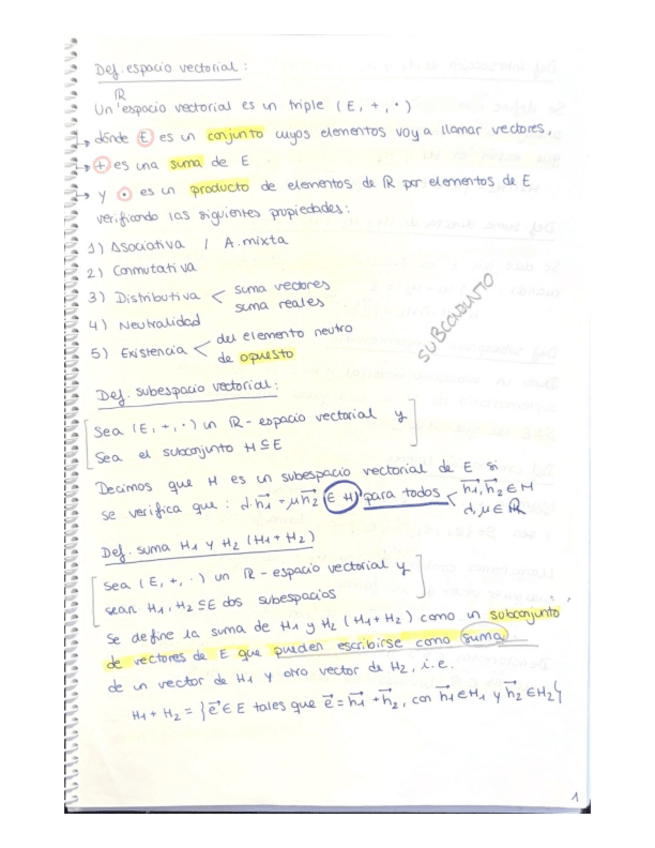 Def. espacio vectorial:
Un ℝ espacio vectorial es un triple (E, +, ·)
→ dónde E es un conjunto cuyos elementos voy a llamar vectores,
→ + es una suma de E
→ y · es un producto de elementos de ℝ por elementos de E
verificando las siguientes propiedades:
1) Asociativa / A. mixta
2) Conmutativa
3) Distributiva < suma vectores
suma reales
4) Neutralidad
5) Existencia < del elemento neutro
de opuesto
SUBCONJUNTO
Def. subespacio vectorial:
Sea (E, +, ·) un ℝ - espacio vectorial y
Sea el subconjunto H ⊆ E
Decimos que H es un subespacio vectorial de E si
se verifica que: α·h⃗1 - μh⃗2 ∈ H para todos < h⃗1, h⃗2 ∈ H
α, μ ∈ ℝ
Def. suma H1 y H2 (H1+H2)
Sea (E, +, ·) un ℝ - espacio vectorial y
sean H1, H2 ⊆ E dos subespacios
Se define la suma de H1 y H2 (H1+H2) como un subconjunto
de vectores de E que pueden escribirse como suma
de un vector de H1 y otro vector de H2, i.e.
H1 + H2 = {e⃗ ∈ E tales que e⃗ = h⃗1 + h⃗2, con h⃗1 ∈ H1 y h⃗2 ∈ H2}
1